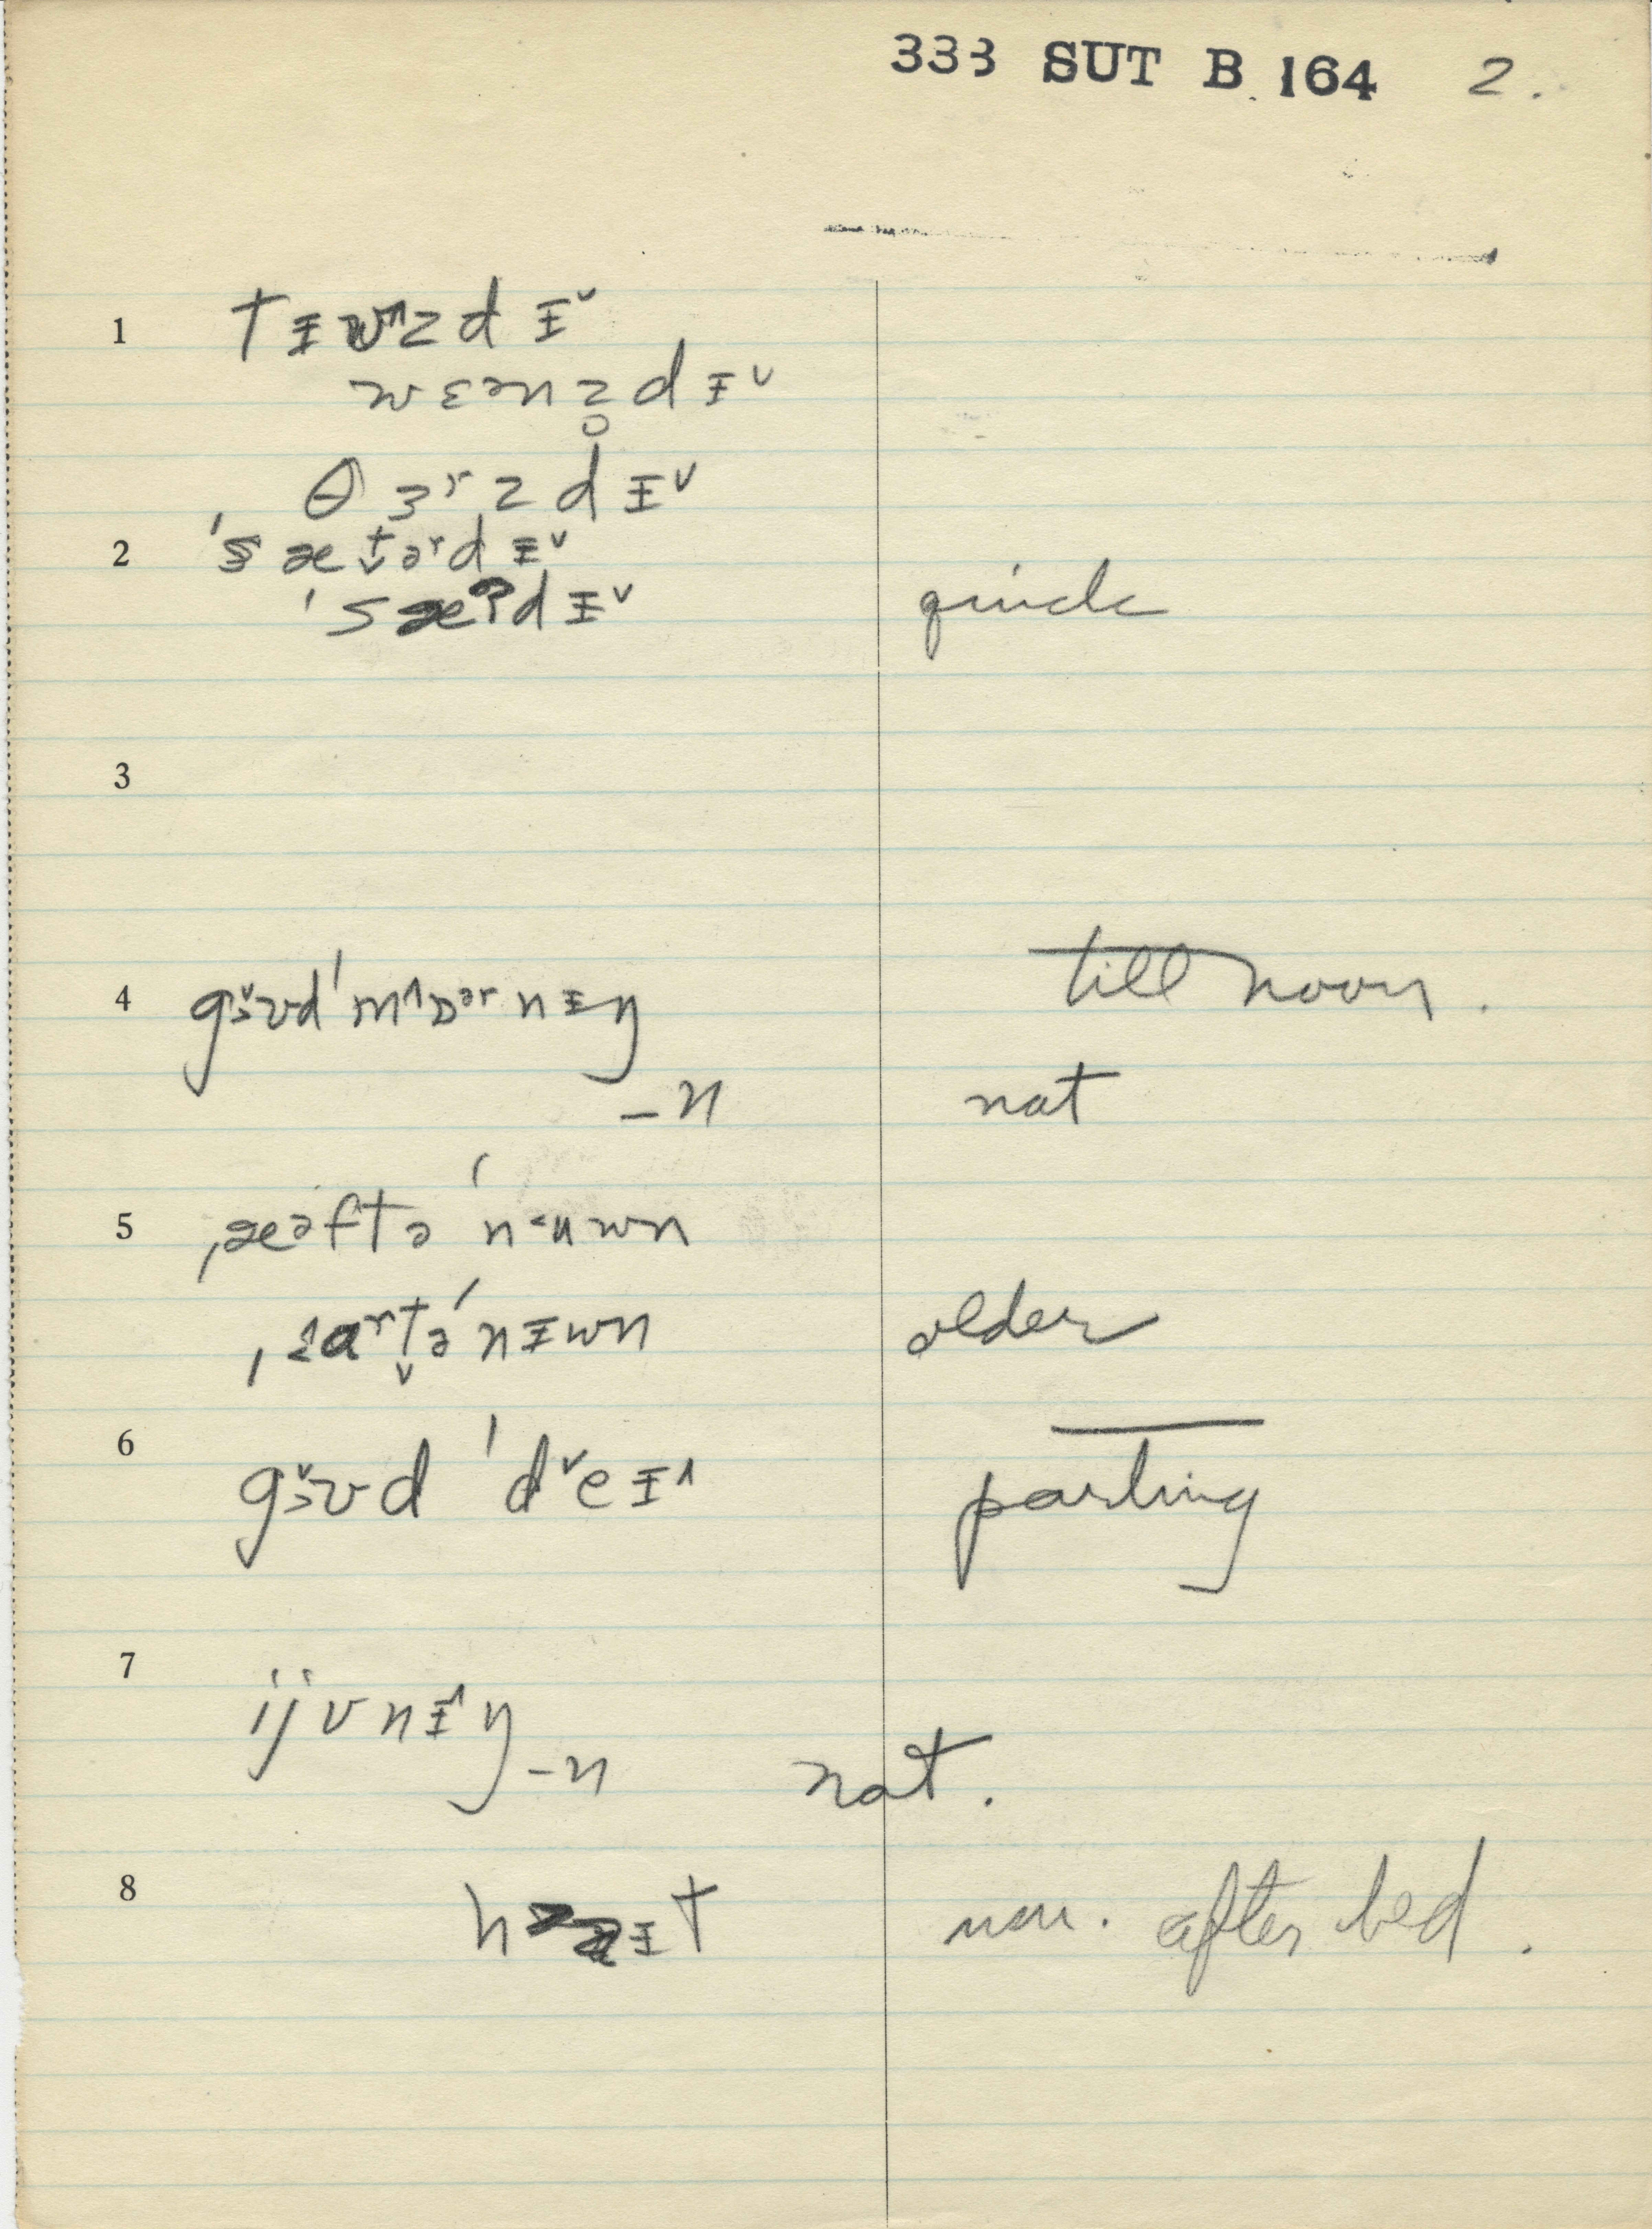 333 SUT B 164 2.
1 tɪwᴧzdɪ˅
wɛənz̥dɪ˅
θɜʳzdɪ˅
2 'sæt̬əʳdɪ˅
'sæʔdɪ˅ quick
3
4 gɜ˅ʊd 'mᴧɒəʳnɪŋ till noon.
-n nat
5 ˌæəftə 'n˂ʉwn
ˌɑʳt̬ə 'nɪwn older
6 gɜ˅ʊd 'd˅eɪ^ parting
7 ijvnɪ^ŋ
-n nat.
8 t nm. after bed.